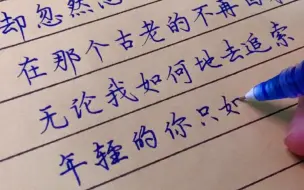 却忽然
在那个古老的不再
无论我如何地去追索
年轻的你只如